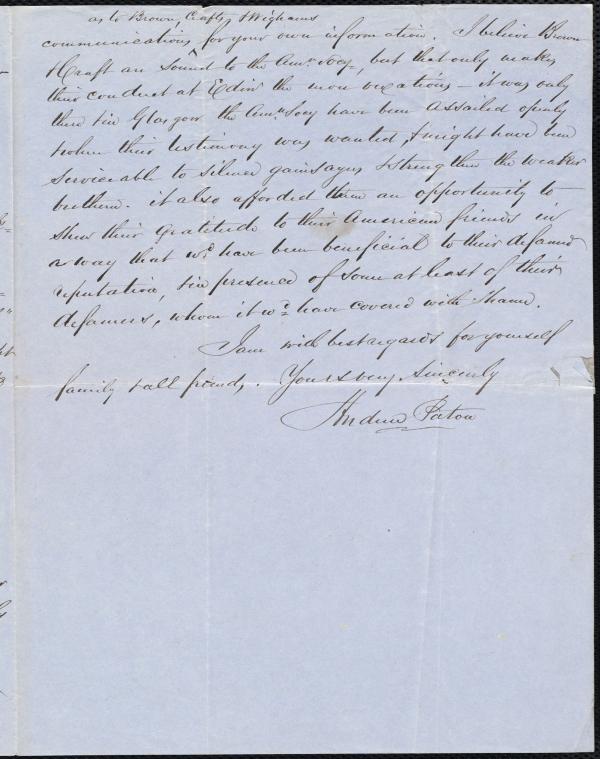 as to Brown, Crafts, & Wighams
communications ^ for your own information. I believe Brown
& Craft are Sound to the Amn. Socy, but that only makes
their conduct at Edinr the more vexatious - it was only
there & in Glasgow the Amn. Socy have been assailed openly
when their testimony was wanted, & might have been
serviceable to silence gainsayers & strengthen the weaker
brethren. it also afforded them an opportunity to
shew their gratitude to their American friends in
a way that wd. have been beneficial to their defamed
reputation, & in presence of some at least of their
defamers, whom it wd. have covered with shame.
I am with best regards for yourself
family & all friends, Yours very Sincerely
Andrew Paton